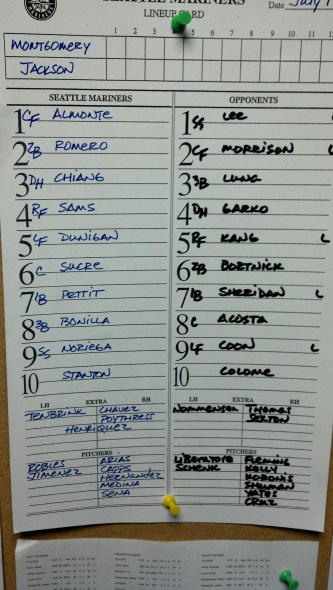 SEATTLE MARINERS
LINEUP CARD
Date July 1
1 2 3 4 5 6 7 8 9 10 11 12
MONTGOMERY
JACKSON
SEATTLE MARINERS OPPONENTS
1 CF ALMONTE 1 SS LEE
2 2B ROMERO 2 CF MORRISON L
3 DH CHIANG 3 3B LUNG
4 RF SAMS 4 DH GARKO
5 LF DUNIGAN 5 RF KANG L
6 C SUCRE 6 2B BORTNICK
7 1B PETTIT 7 1B SHERIDAN L
8 3B BONILLA 8 C ACOSTA
9 SS NORIEGA 9 LF COON L
10 STANTON 10 COLOME
LH EXTRA RH LH EXTRA RH
TENBRINK CHAVEZ NOMMENSEN THOMAS
POYTHRESS SEXTON
HENRIQUEZ
PITCHERS PITCHERS
ROBLES ARIAS LIBERATORE FLEMING
JIMENEZ CAPPS SCHENK KELLY
HERNANDEZ KORONIS
MEDINA SHUMAN
SENA YATES
CRUZ